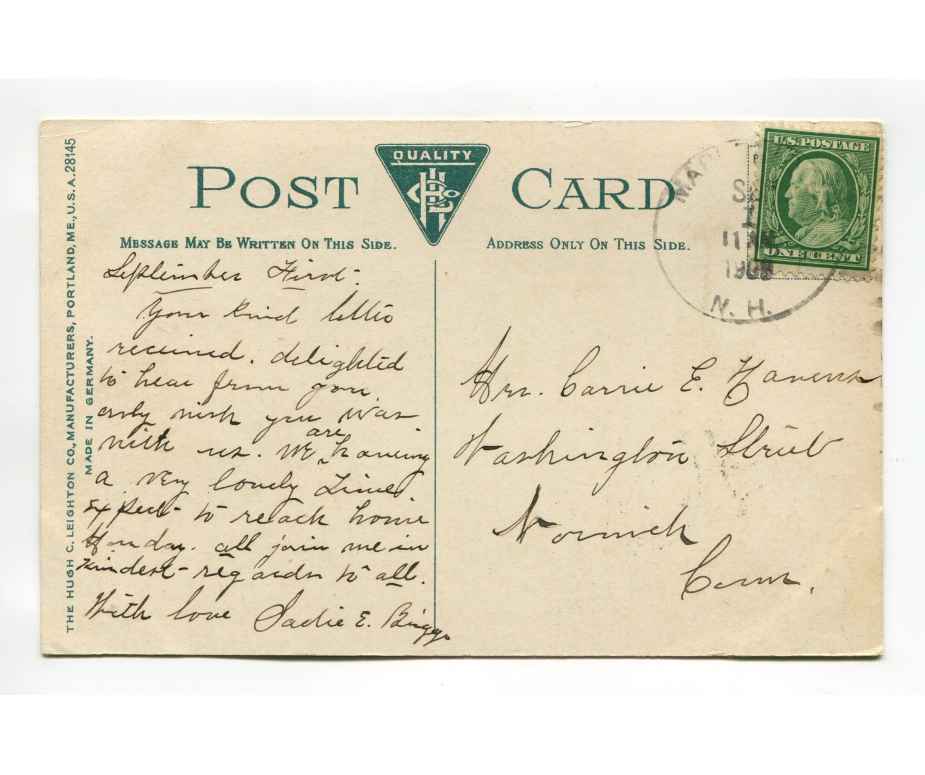 THE HUGH C. LEIGHTON CO., MANUFACTURERS, PORTLAND, ME., U.S.A. 28145
MADE IN GERMANY.
QUALITY
POST CARD
MESSAGE MAY BE WRITTEN ON THIS SIDE.
ADDRESS ONLY ON THIS SIDE.
U.S. POSTAGE
ONE CENT
11
N. H.
September First-
Your kind letter
received. delighted
to hear from you
only wish you was
with us. We are having
a very lovely time.
Expect to reach home
Monday. all join me in
kindest regards to all.
With love Sadie E. Briggs
Mrs. Carrie E.
Washington Street
Norwich
Conn.